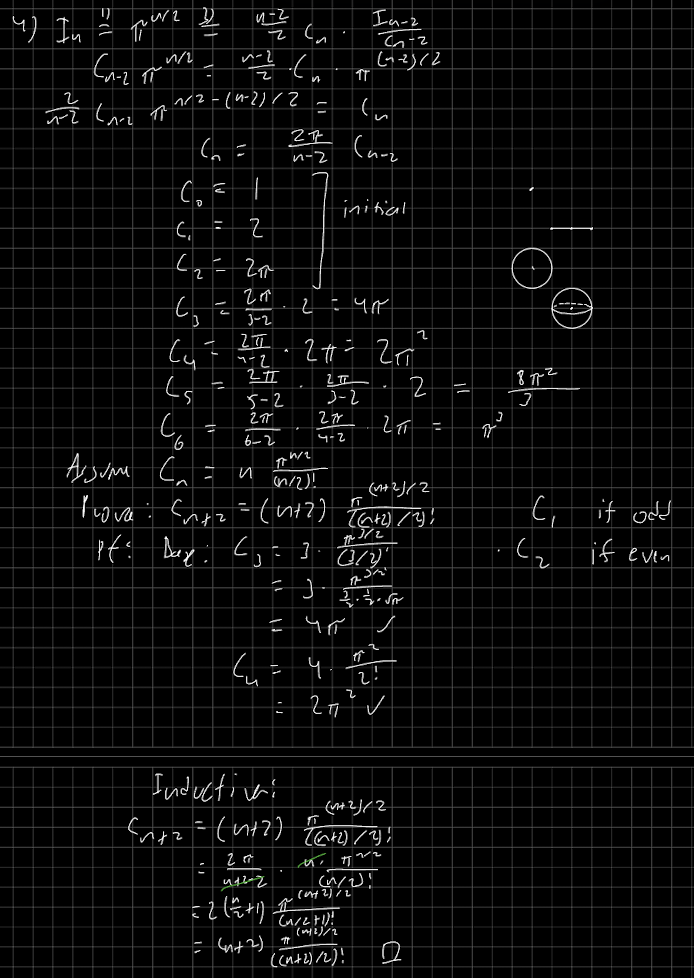 4) Iₙ =¹⁾ π^(n/2) =³⁾ (n-2)/2 Cₙ · Iₙ₋₂/Cₙ₋₂
Cₙ₋₂ π^(n/2) = (n-2)/2 · Cₙ · π^((n-2)/2)
2/(n-2) Cₙ₋₂ π^(n/2-(n-2)/2) = Cₙ
Cₙ = 2π/(n-2) Cₙ₋₂
C₀ = 1
C₁ = 2 initial
C₂ = 2π
C₃ = 2π/(3-2) · 2 = 4π
C₄ = 2π/(4-2) · 2π = 2π²
C₅ = 2π/(5-2) · 2π/(3-2) · 2 = 8π²/3
C₆ = 2π/(6-2) · 2π/(4-2) · 2π = π³
Assume Cₙ = n π^(n/2)/(n/2)!
Prove: Cₙ₊₂ = (n+2) π^((n+2)/2)/((n+2)/2)! C₁ if odd
Pf: Base: C₃ = 3 · π^(3/2)/(3/2)! · C₂ if even
= 3 · π^(3/2)/(3/2 · 1/2 · √π)
= 4π ✓
C₄ = 4 · π²/2!
= 2π² ✓
Inductive:
Cₙ₊₂ = (n+2) π^((n+2)/2)/((n+2)/2)!
= 2π/(n+2-2) · n · π^(n/2)/(n/2)!
= 2(n/2+1) π^((n+2)/2)/(n/2+1)!
= (n+2) π^((n+2)/2)/((n+2)/2)! □